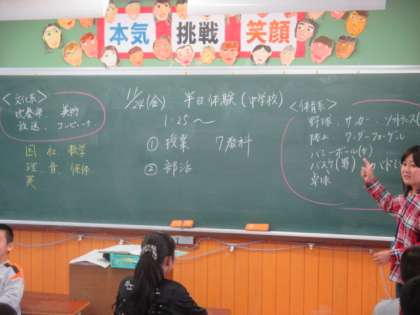 本気 挑戦 笑顔
<文化系>
吹奏楽 美術
放送、コンピュータ
国 社 数学
理 音 保体
英
11/24(金) 半日体験(中学校)
1:25〜
① 授業 7教科
② 部活
<体育系>
野球、サッカー、ソフトテニス
陸上 ワンダーフォーゲル
バレーボール(女)
バスケ(男) バドミ
卓球